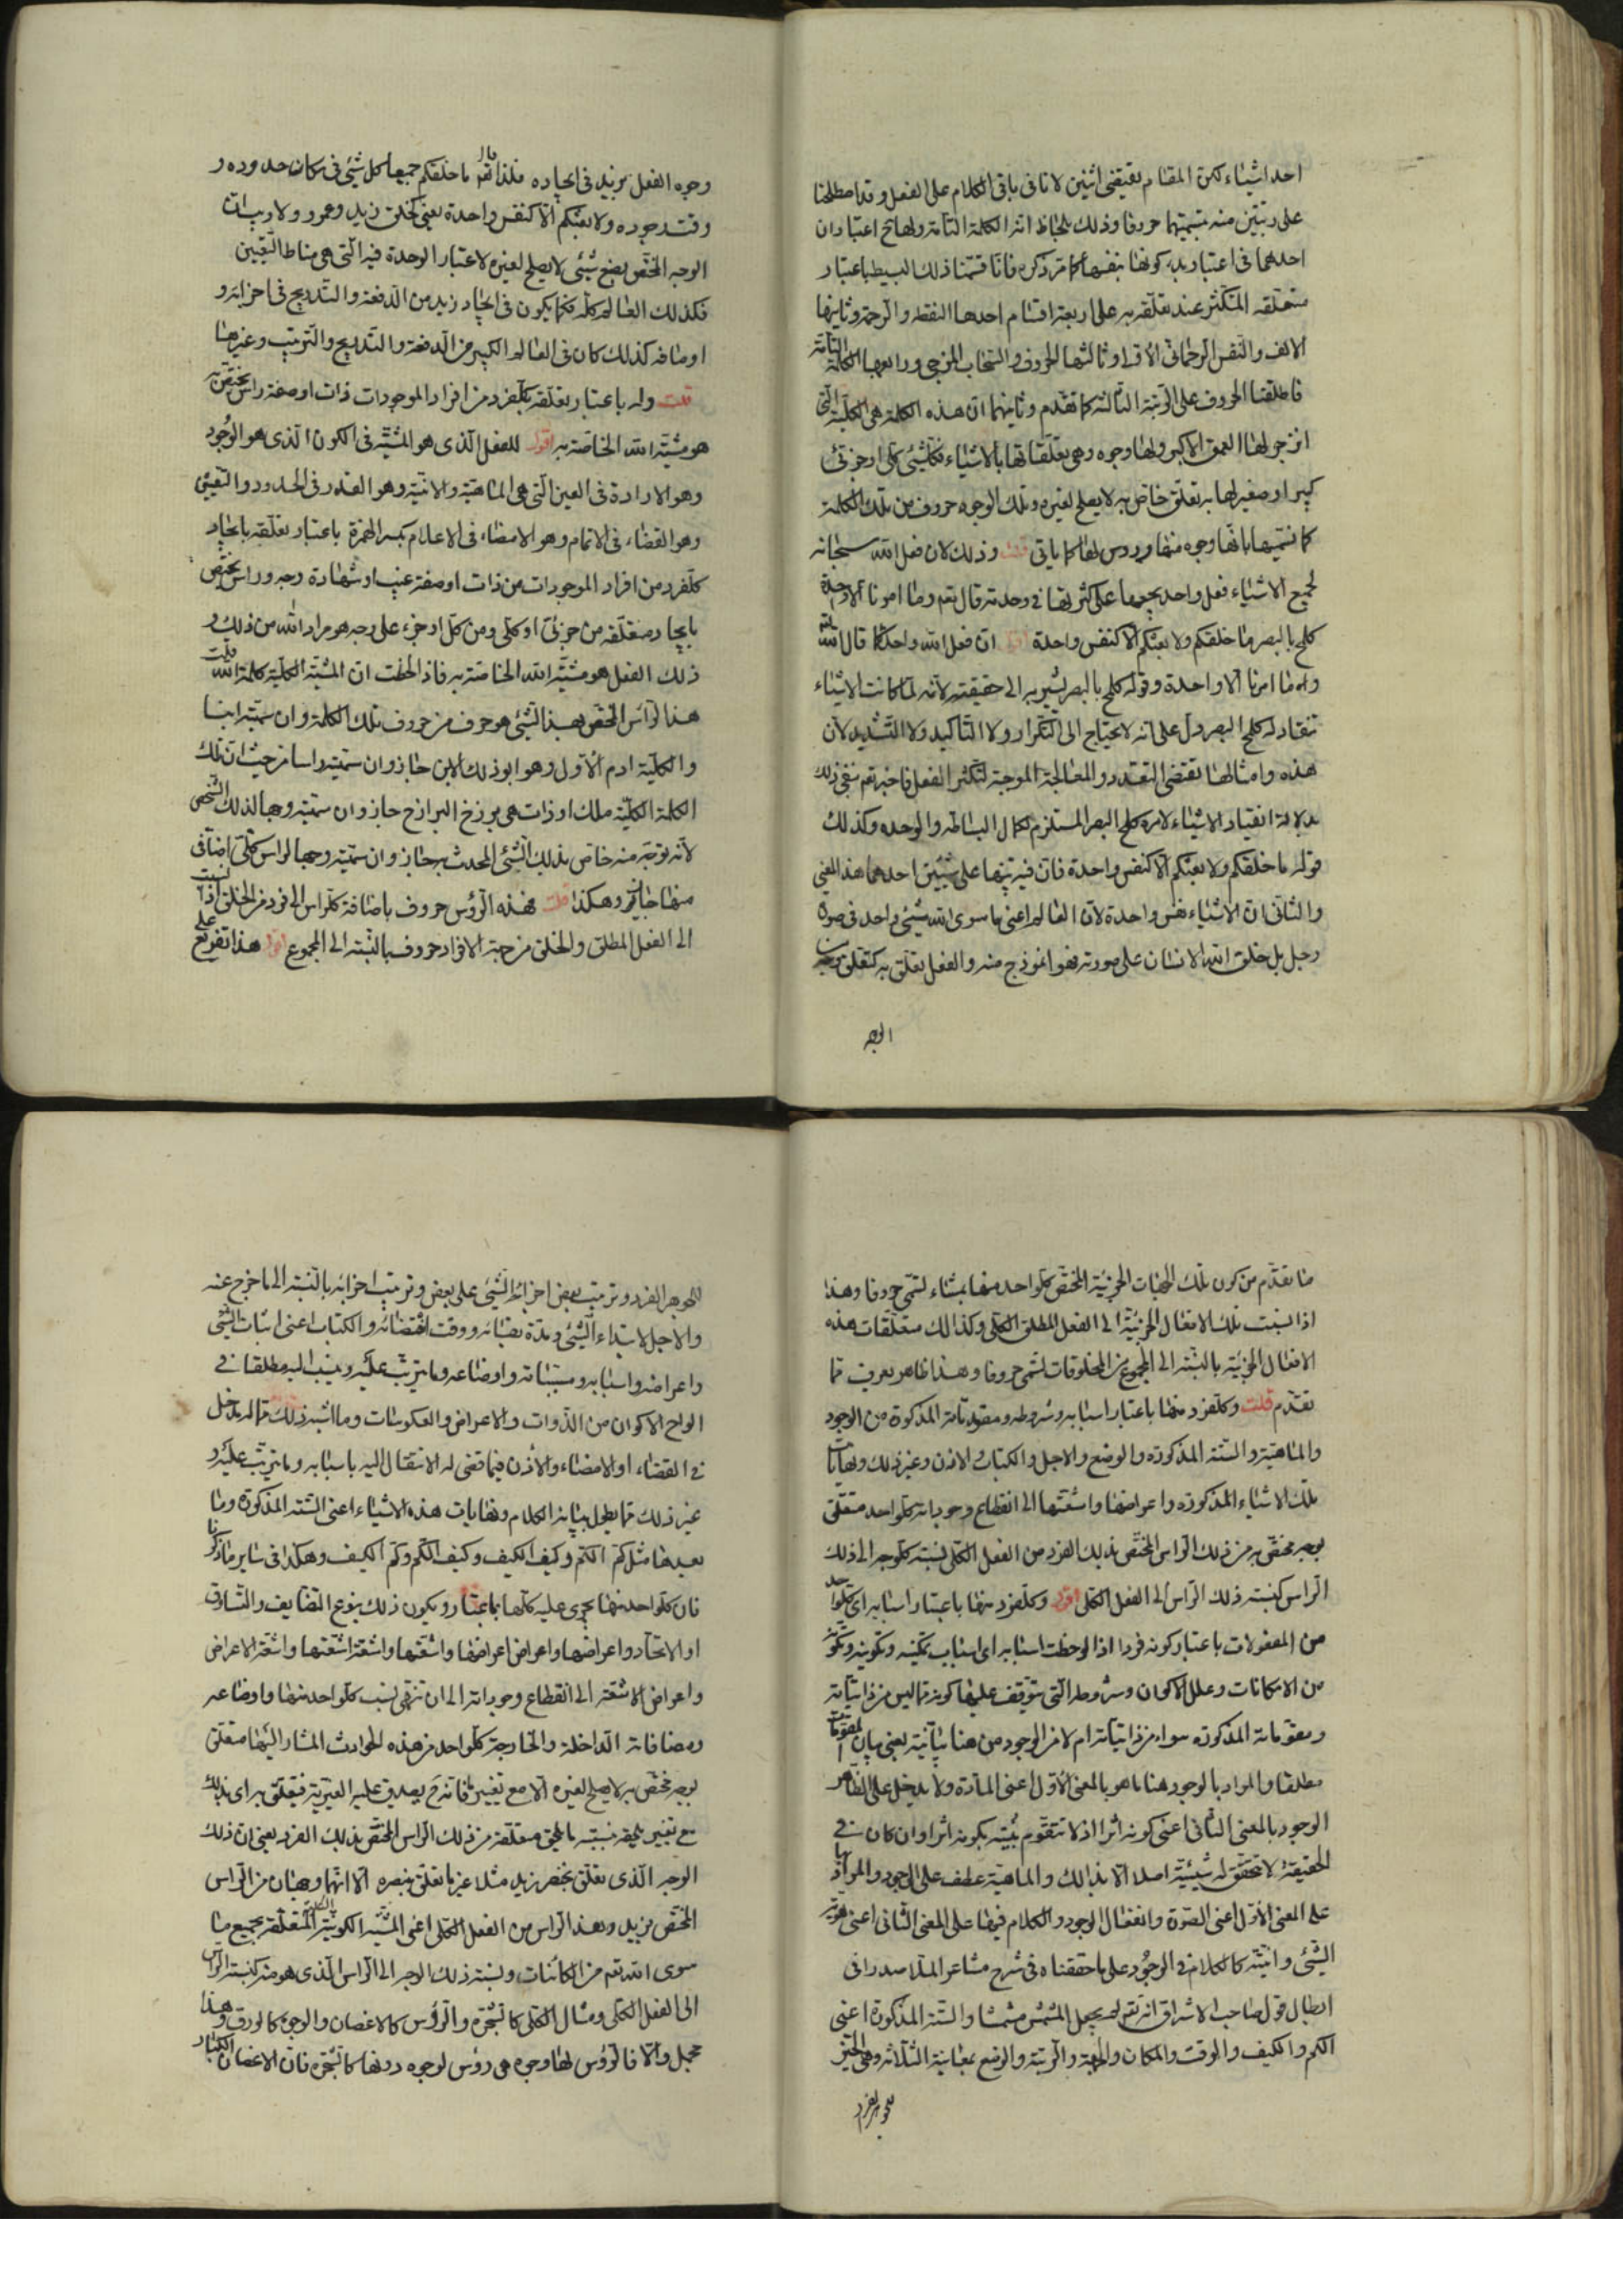 احد اشياء لكن المقام يقتضى اثنين لانا فى باقى الكلام على الفعل وقد اصطلحنا
على رتبتين منه بتسميتهما حروفا وذلك بلحاظ انه الكلمة التامة ولها ح اعتباران
احدهما فى اعتبار كونها بنفسها كما مر ذكره فانا قسمنا ذلك البسيط باعتبار
متعلقه المتكثر عند تعلقه به على اربعة اقسام احدها النقطة والرحمة وثانيها
الالف والنفس الرحمانى الأولى وثالثها الحروف والسحاب المزجى ورابعها الكلمة التامة
فاطلقنا الحروف على الرتبة الثالثة كما تقدم وثانيهما ان هذه الكلمة هى الكلية التى
انزجر لها العمق الاكبر ولها وجوه وهى تعلقاتها بالاشياء فكل شئ كلى او جزئى
كبير او صغير لها به تعلق خاص به لا يصلح لغيره وتلك الوجوه حروف من تلك الكلمة
كما نسميها بانها وجوه منها ورؤس لها كما ياتى قلت وذلك لان فعل الله سبحانه
لجميع الاشياء فعل واحد يجمعها على كثرتها فى وحدته قال تعم وما امرنا الا واحدة
كلمح بالبصر ما خلقكم ولا بعثكم الا كنفس واحدة اقول ان فعل الله واحد كما قال الله تعم
وما امرنا الا واحدة وقوله كلمح بالبصر يشير به الى حقيقته لانه لما كانت الاشياء
تنقاد له كلمح البصر دل على انه لا يحتاج الى التكرار ولا التاكيد ولا التشديد لان
هذه وامثالها تقتضى التعدد والمعالجة الموجبة لتكثر الفعل فاخبر تعم بنفى ذلك
بدلالة انقياد الاشياء لامره كلمح البصر المستلزم لكمال البساطة والوحدة وكذلك
قوله ما خلقكم ولا بعثكم الا كنفس واحدة فان فيه تنبيها على شيئين احدهما هذا المعنى
والثانى ان الاشياء نفس واحدة لان العالم اعنى ما سوى الله شيئ واحد فى صورة
رجل بل خلق الله الانسان على صورته فهو انموذج منه والفعل تعلق به كتعلق
الوجه
وجوه الفعل بزيد فى ايجاده فلذا قال تعم ما خلقكم جميعا كل شيئ فى مكان حدوده و
وقت وجوده ولا بعثكم الا كنفس واحدة يعنى كخلق زيد وعمرو ولا ريب ان
الوجه المختص بصنع شيئ لا يصلح لغيره لاعتبار الوحدة فيه التى هى مناط التعين
فكذلك العالم كله فكما يكون فى ايجاد زيد من الدفعة والتدريج فى اجزائه و
اوصافه كذلك كان فى العالم الكبير من الدفعة والتدريج والترتيب وغيرها
قلت وله باعتبار تعلقه بكل فرد من افراد الموجودات ذات او صفة راس يختص به
هو مشية الله الخاصة به اقول للفعل الذى هو المشية فى الكون الذى هو الوجود
وهو الارادة فى العين التى هى الماهية والانية وهو القدر فى الحدود والتعين
وهو القضاء فى الاتمام وهو الامضاء فى الاعلام بكسر الهمزة باعتبار تعلقه بايجاد
كل فرد من افراد الموجودات من ذات او صفة غيب او شهادة وجه وراس يختص
بايجاد متعلقه من جزئى او كلى ومن كل او جزء على وجه هو مراد الله من ذلك و
ذلك الفعل هو مشية الله الخاصة به فاذا لحظت ان المشية الكلية كلمة الله قلت
هذا الراس المختص بهذا الشئ هو حرف من حروف تلك الكلمة وان سميته ابنا
والكلية ادم الأول وهو ابو ذلك الابن جاز وان سميته راسا من حيث ان تلك
الكلمة الكلية ملك او ذات هى برزخ البرازخ جاز وان سميته وجها لذلك الشخص
لانه توجه منه خاص بذلك الشئ المحدث به جاز وان سميته وجها لراس كلى اضافى
منها جاز وهكذا قلت فهذه الرؤس حروف باضافة كل راس الى فرد من الخلق اذا نسبت
الى الفعل المطلق والخلق من جهة الافراد حروف بالنسبة الى المجموع اقول هذا تفريع على
ما تقدم من كون تلك الهيئات الجزئية المختص كل واحد منها بمشاء تسمى حروفا وهذا
اذا نسبت تلك الافعال الجزئية الى الفعل المطلق الكلى وكذالك متعلقات هذه
الافعال الجزئية بالنسبة الى المجموع من المخلوقات تسمى حروفا وهذا ظاهر يعرف مما
تقدم قلت وكل فرد منها باعتبار اسبابه وشروطه ومقوماته المذكورة من الوجود
والماهية والستة المذكورة والوضع والاجل والكتاب والاذن وغير ذلك ونهايات
تلك الاشياء المذكورة واعراضها واشعتها الى انقطاع وجوداته كل واحد متعلق
بوجه مختص به من ذلك الراس المختص بذلك الفرد من الفعل الكلى نسبة كل وجه الى ذلك
الراس كنسبة ذلك الراس الى الفعل الكلى اقول وكل فرد منها باعتبار اسبابه اى كل واحد
من المفعولات باعتبار كونه فردا اذا لوحظت اسبابه اى اسباب تمكينه وتكوينه وتكونه
من الامكانات وعلل الاكوان وشروطه التى يتوقف عليها كونه مما ليس من ذاتياته
ومقوماته المذكورة سواء من ذاتياته ام لا من الوجود من هنا بيانية يعنى بيان لمقومات
مطلقا والمراد بالوجود هنا ما هو بالمعنى الأول اعنى المادة ولا يدخل على الظاهر
الوجود بالمعنى الثانى اعنى كونه اثرا اذ لا تتقوم بنيته بكونه اثرا وان كان فى
الحقيقة لا تتحقق له شيئية اصلا الا بذالك والماهية عطف على الوجود والمراد بها
على المعنى الأول اعنى الصورة وانفعال الوجود والكلام فيها على المعنى الثانى اعنى هوية
الشئ وانيته كالكلام فى الوجود على ما حققناه فى شرح مشاعر الملا صدرا فى
ابطال قول صاحب الاشراق انه تعم لم يجعل المشمش مشمشا والستة المذكورة اعنى
الكم والكيف والوقت والمكان والجهة والرتبة والوضع بمعانيه الثلاثة وهى التحيز
للجوهر الفرد
للجوهر الفرد وترتيب بعض اجزاء الشئ على بعض وترتيب اجزائه بالنسبة الى ما خرج عنه
والاجل لابتداء الشئ ومدة بقائه ووقت انقضائه والكتاب اعنى اثبات الشئ
واعراضه واسبابه ومسبباته واوضاعه وما يترتب عليه وينسب اليه مطلقا فى
الواح الاكوان من الذوات والاعراض والعكوسات وما اشبه ذلك مما له مدخل
فى القضاء او الامضاء والأذن فيما قضى له الانتقال اليه باسبابه وما يترتب عليه و
غير ذلك مما يطول ببيانه الكلام ونهايات هذه الاشياء اعنى الستة المذكورة وما
بعدها مثل كم الكم وكيف الكيف وكيف الكم وكم الكيف وهكذا فى ساير ما ذكرنا
فان كل واحد منها يجرى عليه كلها باعتبار ويكون ذلك بنوع التضايف والتساوق
او الاتحاد واعراضها واعراض اعراضها واشعتها واشعة اشعتها واشعة الاعراض
واعراض الاشعة الى انقطاع وجوداته الى ان تنتهى نسب كل واحد منها واوضاعه
ومضافاته الداخلة والخارجة كل واحد من هذه الحوادث المشار اليها متعلق
بوجه مختص به لا يصلح لغيره الا مع تغيير ما فانه ح يصدق عليه الغيرية فيتعلق به اى بذلك
مع تغيير يلحقه بنسبة ما يلحق متعلقه من ذلك الراس المختص بذلك الفرد يعنى ان ذلك
الوجه الذى تعلق بخصر زيد مثلا غير ما تعلق ببصره الا انهما وجهان من الراس
المختص بزيد وهذا الراس من الفعل الكلى اعنى المشية الكونية الكلية المتعلقة بجميع ما
سوى الله تعم من الكائنات ونسبة ذلك الوجه الى الراس الذى هو منه كنسبة الراس
الى الفعل الكلى ومثال الكلى كالشجرة والرؤس كالاغصان والوجوه كالورق وهذا
مجمل والا فالرؤس لها وجوه هى رؤس لوجوه دونها كالشجرة فان الاغصان الكبار